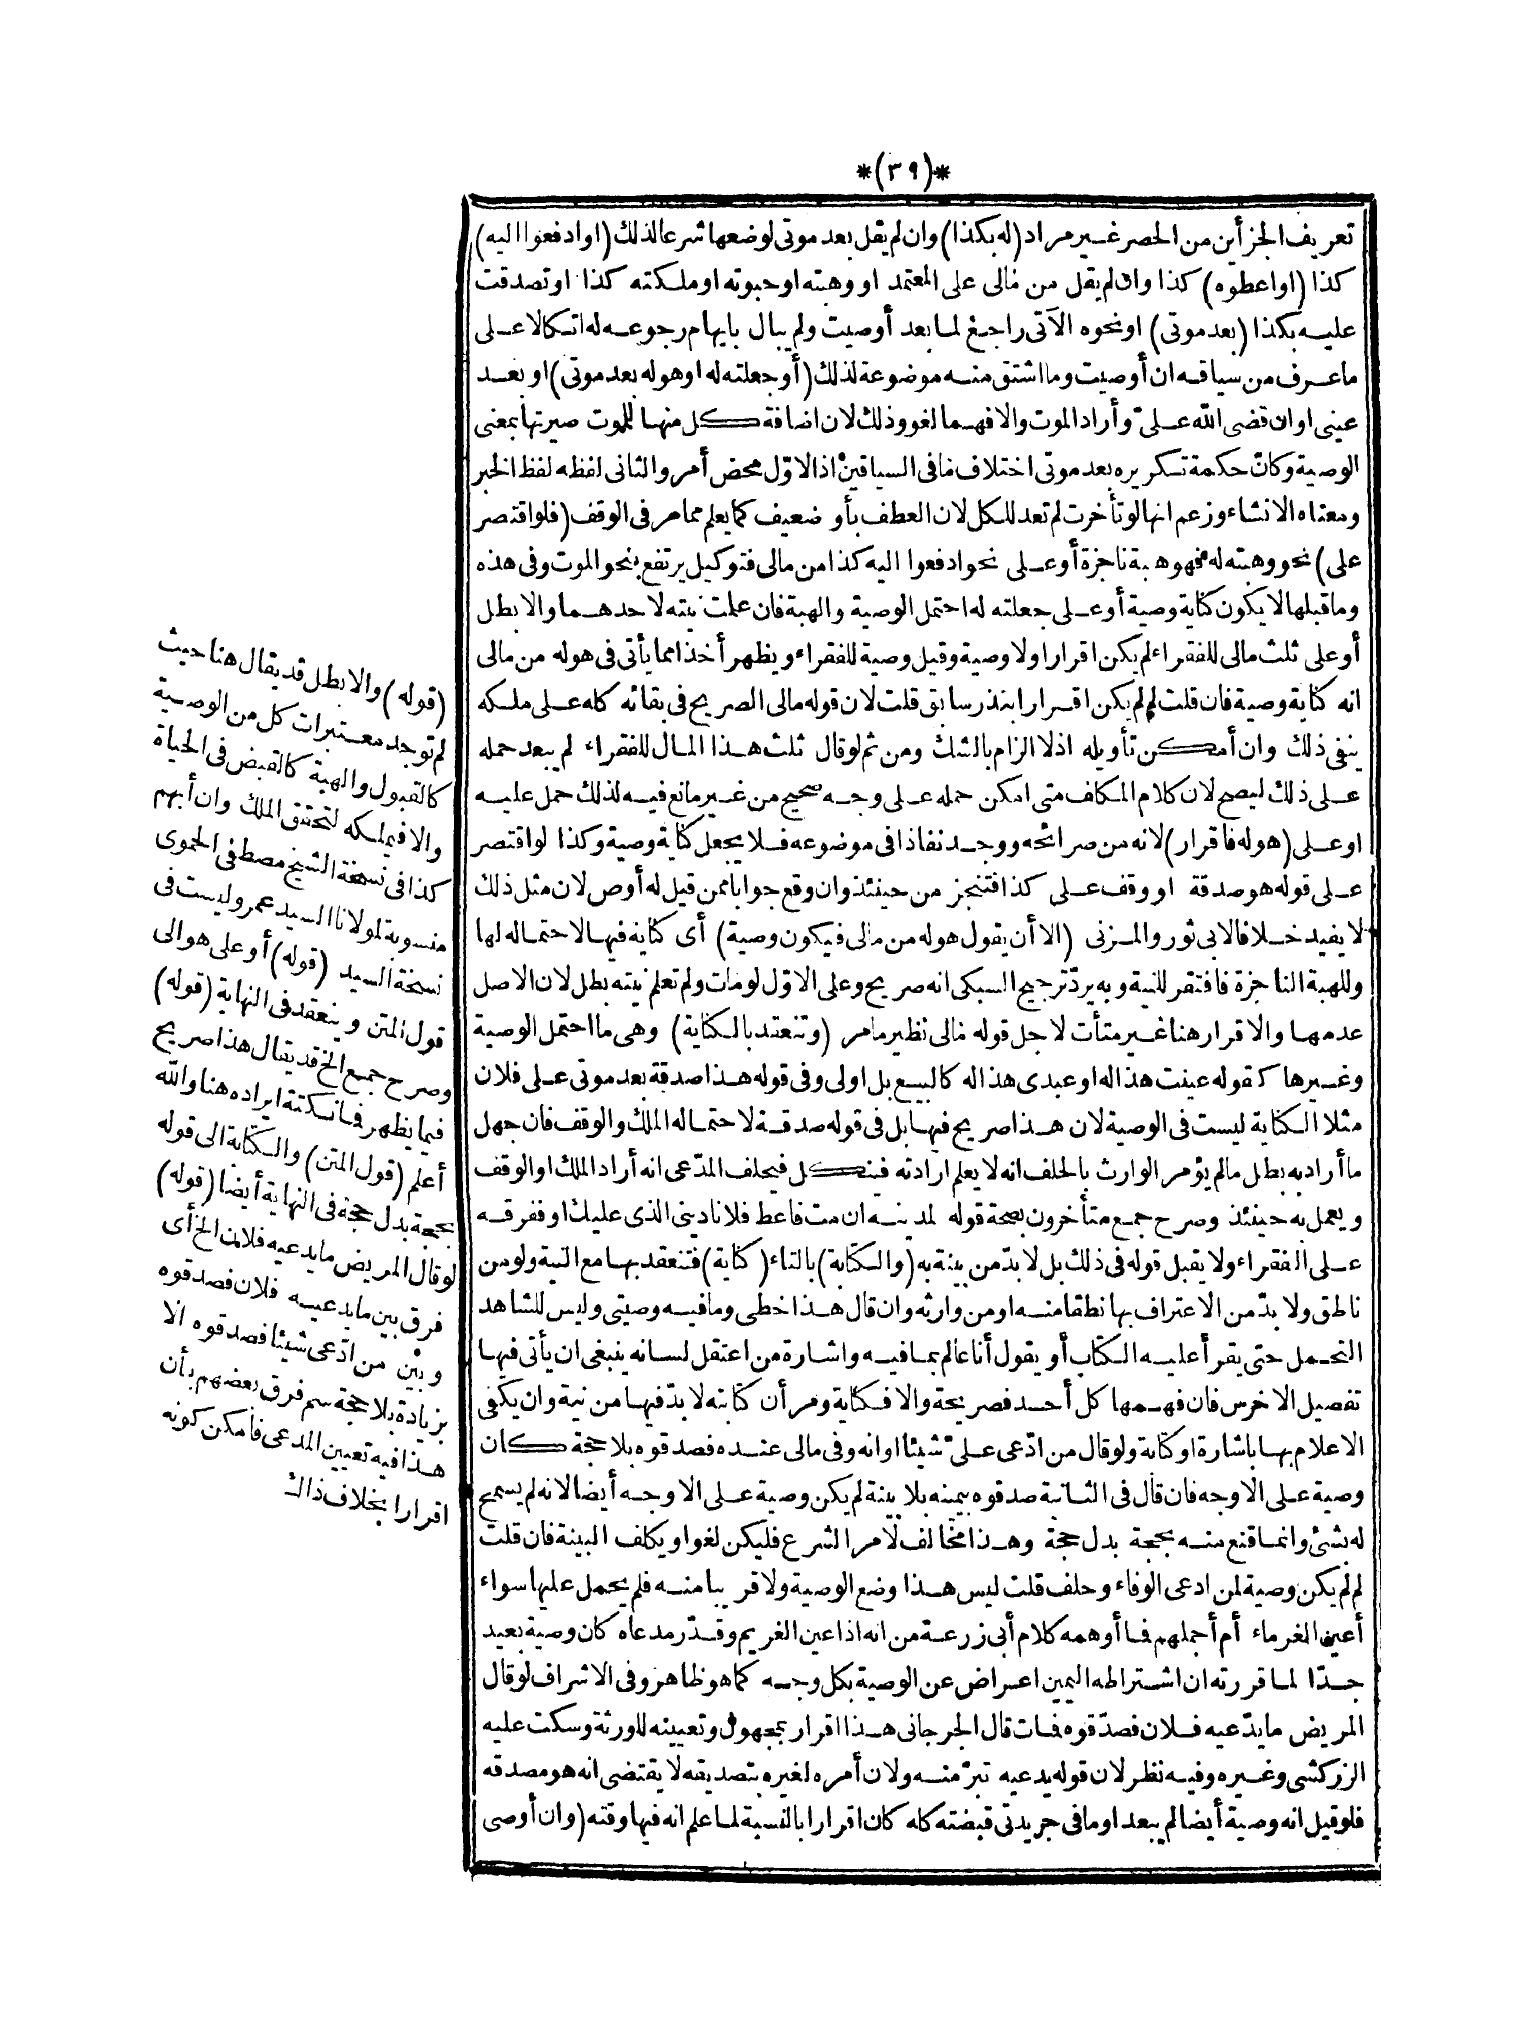 *(٣٩)*
تعريف الجزأين من الحصر غير مراد (له بكذا) وان لم يقل بعد موتى لوضعها شرعا لذلك (او ادفعوا اليه)
كذا (او اعطوه) كذا وان لم يقل من مالى على المعتمد او وهبته او حبوته او ملكته كذا او تصدقت
عليه بكذا (بعد موتى) او نحوه الآتى راجع لما بعد أوصيت ولم يبال بايهام رجوعه له اتكالا على
ما عرف من سياقه ان أوصيت وما اشتق منه موضوعة لذلك (أو جعلته له او هو له بعد موتى) او بعد
عينى او ان قضى الله علىّ وأراد الموت والا فهما لغو وذلك لان اضافة كل منها للموت صيرتها بمعنى
الوصية وكانّ حكمة تكريره بعد موتى اختلاف ما فى السياقين اذ الاوّل محض أمر والثانى لفظه لفظ الخبر
ومعناه الانشاء وزعم انها لو تأخرت لم تعد للكل لان العطف بأو ضعيف كما يعلم مما مر فى الوقف (فلو اقتصر
على) نحو وهبته له فهو هبة ناجزة أو على نحو ادفعوا اليه كذا من مالى فتوكيل يرتفع بنحو الموت وفى هذه
وما قبلها لا يكون كناية وصية أو على جعلته له احتمل الوصية والهبة فان علمت نيته لاحدهما والا بطل
أو على ثلث مالى للفقراء لم يكن اقرارا ولا وصية وقيل وصية للفقراء ويظهر أخذا مما يأتى فى هو له من مالى
انه كناية وصية فان قلت لم لم يكن اقرارا بنذر سابق قلت لان قوله مالى الصريح فى بقائه كله على ملكه
ينفى ذلك وان أمكن تأويله اذ لا الزام بالشك ومن ثم لو قال ثلث هذا المال للفقراء لم يبعد حمله
على ذلك ليصح لان كلام المكلف متى امكن حمله على وجه صحيح من غير مانع فيه لذلك حمل عليه
او على (هو له فاقرار) لانه من صرائحه ووجد نفاذا فى موضوعه فلا يجعل كناية وصية وكذا لو اقتصر
على قوله هو صدقة او وقف على كذا فتنجز من حينئذ وان وقع جوابا ممن قيل له أوص لان مثل ذلك
لا يفيد خلافا لابى ثور والمزنى (الا أن يقول هو له من مالى فيكون وصية) أى كناية فيها لاحتماله لها
وللهبة الناجزة فافتقر للنية وبه يردّ ترجيح السبكى انه صريح وعلى الاوّل لو مات ولم تعلم نيته بطل لان الاصل
عدمها والاقرار هنا غير متأت لاجل قوله مالى نظير ما مر (وتنعقد بالكناية) وهى ما احتمل الوصية
وغيرها كقوله عينت هذا له او عبدى هذا له كالبيع بل اولى وفى قوله هذا صدقة بعد موتى على فلان
مثلا الكناية ليست فى الوصية لان هذا صريح فيها بل فى قوله صدقة لاحتماله الملك والوقف فان جهل
ما أراد به بطل ما لم يؤمر الوارث بالحلف انه لا يعلم ارادته فينكل فيحلف المدّعى انه أراد الملك او الوقف
ويعمل به حينئذ وصرح جمع متأخرون بصحة قوله لمدينه ان مت فاعط فلانا دينى الذى عليك او ففرقه
على الفقراء ولا يقبل قوله فى ذلك بل لا بدّ من بينة به (والكتابة) بالتاء (كناية) فتنعقد بها مع النية ولو من
ناطق ولا بدّ من الاعتراف بها نطقا منه او من وارثه وان قال هذا خطى وما فيه وصيتى وليس للشاهد
التحمل حتى يقرأ عليه الكتاب أو يقول أنا عالم بما فيه واشارة من اعتقل لسانه ينبغى ان يأتى فيها
تفصيل الاخرس فان فهمها كل أحد فصريحة والا فكناية ومر أن كتابته لا بدّ فيها من نية وان يكفى
الاعلام بها باشارة او كتابة ولو قال من ادّعى علىّ شيئا او انه وفى مالى عنده فصدقوه بلا حجة كان
وصية على الاوجه فان قال فى الثانية صدقوه بيمينه بلا بينة لم يكن وصية على الاوجه أيضا لانه لم يسمح
له بشئ وانما قنع منه بحجة بدل حجة وهذا مخالف لأمر الشرع فليكن لغوا ويكلف البينة فان قلت
لم لم يكن وصية لمن ادعى الوفاء وحلف قلت ليس هذا وضع الوصية ولا قريبا منه فلم يحمل عليها سواء
أعين الغرماء أم أجملهم فما أوهمه كلام أبى زرعة من انه اذا عين الغريم وقدّر مدعاه كان وصية بعيد
جدّا لما قررته ان اشتراطه اليمين اعراض عن الوصية بكل وجه كما هو ظاهر وفى الاشراف لو قال
المريض ما يدّعيه فلان فصدّقوه فمات قال الجرجانى هذا اقرار بمجهول وتعيينه للورثة وسكت عليه
الزركشى وغيره وفيه نظر لان قوله يدعيه تبرّ منه ولان أمره لغيره بتصديقه لا يقتضى انه هو مصدقه
فلو قيل انه وصية أيضا لم يبعد او ما فى جريدتى قبضته كله كان اقرارا بالنسبة لما علم انه فيها وقته (وان أوصى
(قوله) والا بطل قد يقال هنا حيث
لم توجد معتبرات كل من الوصية
كالقبول والهبة كالقبض فى الحياة
والا فيملكه لتحقق الملك وان أبهم
كذا فى نسخة الشيخ مصطفى الحموى
منسوبة لمولانا السيد عمر وليست فى
نسخة السيد (قوله) أو على هو الى
قول المتن وينعقد فى النهاية (قوله)
وصرح جمع الخ قد يقال هذا صريح
فيما يظهر فما نكتة ايراده هنا والله
أعلم (قول المتن) والكتابة الى قوله
بحجة بدل حجة فى النهاية أيضا (قوله)
لو قال المريض ما يدعيه فلان الخ أى
فرق بين ما يدعيه فلان فصدقوه
وبين من ادّعى شيئا فصدقوه الا
بزيادة بلا حجة سم فرق بعضهم بأن
هذا فيه تعيين المدعى فأمكن كونه
اقرارا بخلاف ذاك